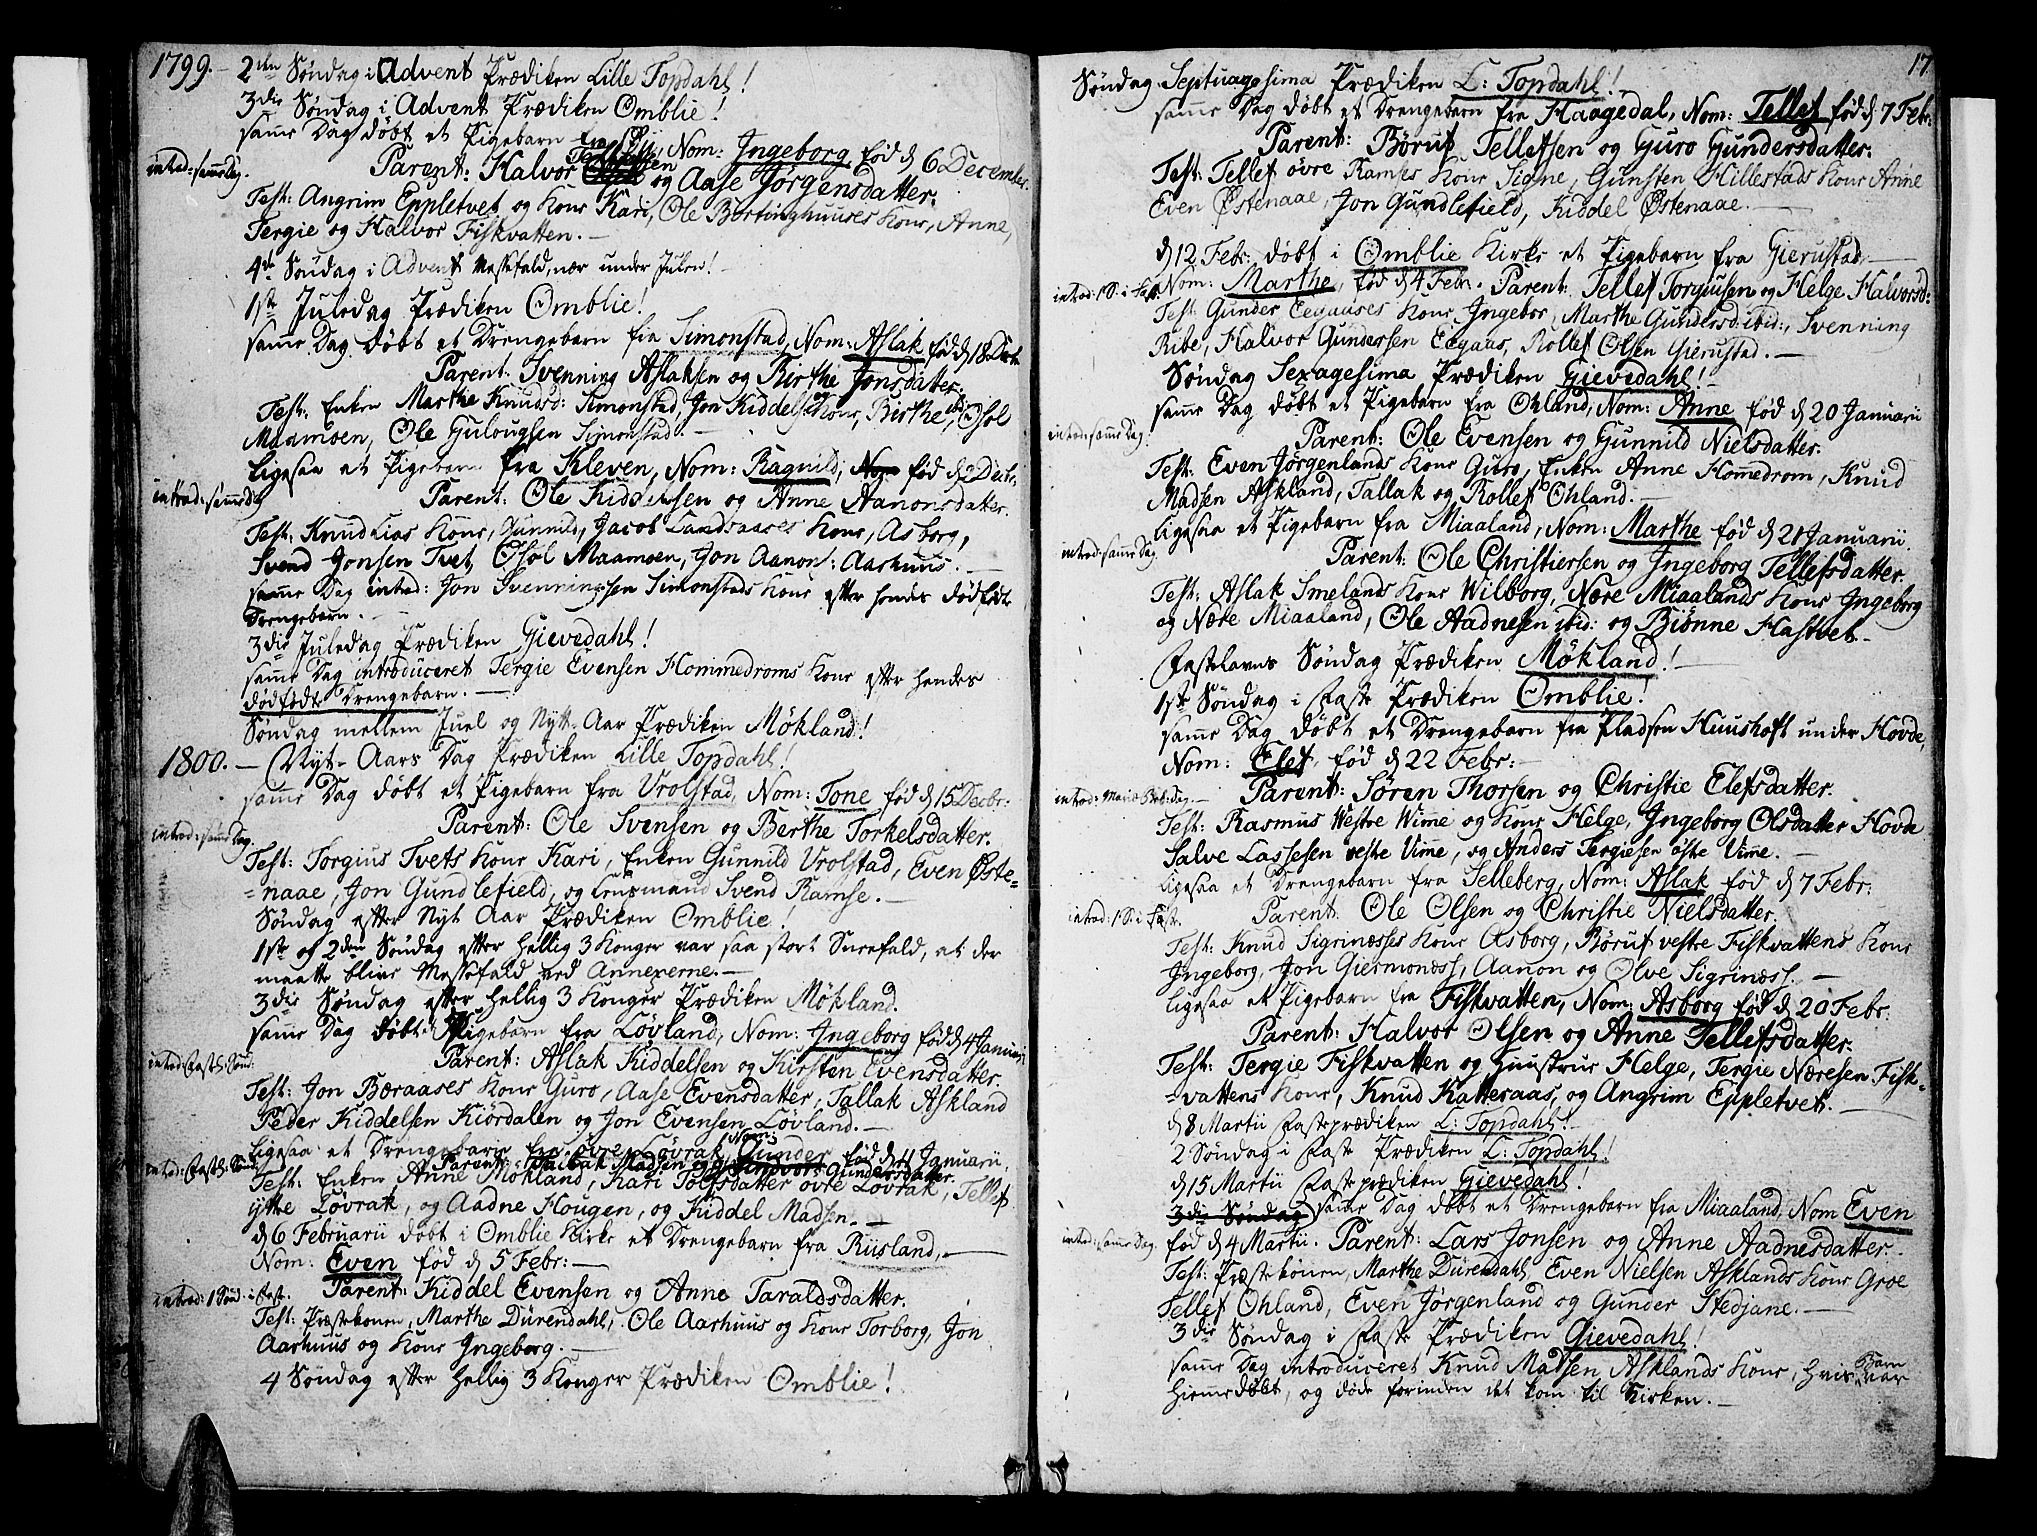 1799. – 2den Søndag i Advent Prædiken Lille Topdahl!
3die Søndag i Advent Prædiken Omblie!
samme Dag døbt et Pigebarn fra Nom: Ingeborg fød d 6 December.
introd: samme Dag.
Parent: Halvor og Aase Jørgensdatter.
Test: Angrim Eppletvet og Kone Kari, Ole Bortinghuuses Kone, Anne,
Tergie og Halvor Fiskvatten. –
4de Søndag i Advent Messefald, nær under Julen! –
1ste Juledag Prædiken Omblie!
samme Dag døbt et Drengebarn fra Simonstad, Nom: Aslak fød d 18 Decbr
Parent: Svenning Aslaksen og Birthe Jonsdatter.
Test: Enken Marthe Knudsd: Simonstad, Jon Kiddels Kone, Birthe ibid, Osol
Maamoen, Ole Gulougsen Simonstad. –
Ligesaa et Pigebarn fra Kleven, Nom: Ragnild, fød d 2 Decbr,
introd: samme Dag
Parent: Ole Kiddelsen og Anne Aanonsdatter.
Test: Knud Lias Kone, Gunnild, Jacob Landsaases Kone, Asborg,
Svend Jonsen Tvet, Osol Maamoen, Jon Aanon: Aarhuus. –
samme Dag introd: Jon Svenningsen Simonstads Kone efter hendes dødfødte
Drengebarn. –
3die Juledag Prædiken Gievedahl!
samme Dag introduceret Tergie Evensen Hommedroms Kone efter hendes
dødfødte Drengebarn. –
Søndag mellem Juel og Nytt-Aar Prædiken Mökland!
1800. – Nyt-Aars Dag Prædiken Lille Topdahl!
samme Dag døbt et Pigebarn fra Vrolstad, Nom: Tone fød d 15 Decbr:
Parent: Ole Svensen og Berthe Torkelsdatter.
introd: samme Dag.
Test: Torgius Tvets Kone Kari, Enken Gunnild Vrolstad, Even Øste=
=naae, Jon Gundlefield, og Lensmand Svend Ramse. –
Søndag efter Nyt Aar Prædiken Omblie!
1ste og 2den Søndag efter hellig 3 Konger var saa stort Sneefald, at der
maatte blive Messefald ved Annexerne. –
3die Søndag efter hellig 3 Konger Prædiken Mökland.
samme Dag døbt et Pigebarn fra Lövland, Nom: Ingeborg fød d 4 Januarii
Parent: Aslak Kiddelsen og Kirsten Evensdatter.
introd: Fastel: Sønd:
Test: Jon Bæraases Kone Guro, Aase Evensdatter, Tallak Askland
Peder Kiddelsen Kiördalen og Jon Evensen Lövland. –
Ligesaa et Drengebarn fra övre Lövrak Nom: Gunder fød d 4 Januarii
Parent: Tallak Madsen og Gundersdatter.
introd: Fastel: Sønd:
Test: Enken Anne Mökland, Kari Tolfsdatter övre Lövrak, Tellef
ytte Lövrak, og Aadne Hougen, og Kiddel Madsen. –
d 6 Februarii døbt i Omblie Kirke et Drengebarn fra Riisland, –
Nom: Even fød d 5 Febr: –
introd: 1 Sønd: i Fast.
Parent: Kiddel Evensen og Anne Taraldsdatter.
Test: Præstekonen, Marthe Dürendahl, Ole Aarhuus og Kone Torborg, Jon
Aarhuus og Kone Ingeborg. –
4 Søndag efter hellig 3 Konger Prædiken Omblie!
17
Søndag Septuagesima Prædiken L: Topdahl!
samme Dag døbt et Drengebarn fra Haagedal, Nom: Tellef fød d 7 Febr:
Parent: Børuf Tellefsen og Guro Gundersdatter.
Test: Tellef övre Ramses Kone Signe, Gunsten Hillestads Kone Anne
Even Østenaae, Jon Gundlefield, Kiddel Østenaae. –
d 12 Febr: døbt i Omblie Kirke et Pigebarn fra Gierustad, –
introd: 1 S: i Fast.
Nom: Marthe, fød d 4 Febr. Parent: Tellef Torgiusen og Helge Halvorsd:
Test: Gunder Eegaases Kone Ingebor, Marthe Gundersd: ibid:, Svenning
Ribe, Halvor Gundersen Eegaas, Rollef Olsen Gierustad. –
Søndag Sexagesima Prædiken Gievedahl! –
samme Dag døbt et Pigebarn fra Ohland, Nom: Anne fød d 20 Januarii
introd: samme Dag.
Parent: Ole Evensen og Gunnild Nielsdatter.
Test: Even Jørgenlands Kone Guro, Enken Anne Homedrom, Knud
Madsen Askland, Tallak og Rollef Ohland. –
Ligesaa et Pigebarn fra Miaaland, Nom: Marthe fød d 21 Januarii.
introd: samme Dag.
Parent: Ole Christiersen og Ingeborg Tellefsdatter.
Test: Aslak Smelands Kone Wilborg, Nære Miaalands Kone Ingeborg
og Nære Miaaland, Ole Aadnesen ibid: og Biønne Hastvet. –
Fastelavns Søndag Prædiken Mökland! –
1ste Søndag i Faste Prædiken Omblie!
samme Dag døbt et Drengebarn fra Pladsen Huushoft under Hovde,
Nom: Elef, fød d 22 Febr: –
introd: Mariæ Bebr: Dag. –
Parent: Søren Thorsen og Christie Elefsdatter.
Test: Rasmus Westre Wime og Kone Helge, Ingeborg Olsdatter Hovde
Salve Lassesen vestre Vime, og Anders Tergiesen øste Vime. –
Ligesaa et Drengebarn fra Selleberg, Nom: Aslak fød d 7 Febr:
introd: 1 S: i Fast.
Parent: Ole Olsen og Christie Nielsdatter.
Test: Knud Sigrinæsses Kone Asborg, Børuf vestre Fiskvattens Kone
Ingeborg, Jon Giermonæss, Aanon og Olve Sigrinæss. –
Ligesaa et Pigebarn fra Fiskvatten, Nom: Asborg fød d 20 Febr:
Parent: Halvor Olsen og Anne Tellefsdatter.
Test: Tergie Fiskvatten og Huustrue Helge, Tergie Næresen Fisk=
=vattens Kone, Knud Katteraas, og Angrim Eppletvet. –
d 8 Martii Fasteprædiken L: Topdahl! –
2 Søndag i Faste Prædiken L: Topdahl!
d 15 Martii Fasteprædiken Gievedahl!
3die Søndag samme Dag døbt et Drengebarn fra Miaaland, Nom Even
introd: samme Dag.
fød d 4 Martii. Parent: Lars Jonsen og Anne Aadnesdatter. –
Test: Præstekonen, Marthe Dürendahl, Even Nielsen Asklands Kone Groe
Tellef Ohland, Even Jørgenland og Gunder Stedjane. –
3die Søndag i Faste Prædiken Gievedahl!
samme Dag introduceret Knud Madsen Asklands Kone, hvis Barn var
hiemmedøbt, og døde forinden det kom til Kirken. –